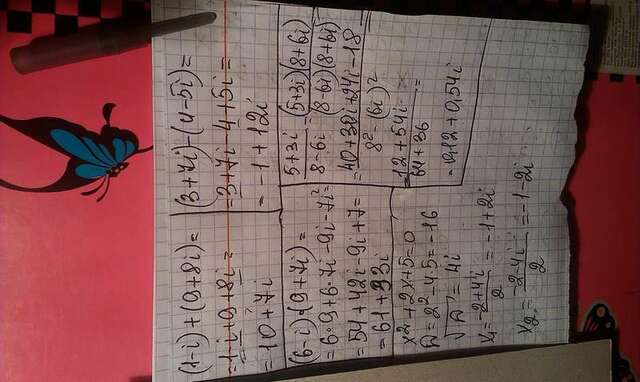 (1-i)+(9+8i)=
=1-i+9+8i=
=10+7i
(3+7i)-(4-5i)=
=3+7i-4+5i=
=-1+12i
(6-i)·(9+7i)=
=6·9+6·7i-9i-7i²=
=54+42i-9i+7=
=61+33i
5+3i/8-6i=(5+3i)(8+6i)/(8-6i)(8+6i)=
=40+30i+24i-18/8²-(6i)²=
=12+54i/64+36=
=0,12+0,54i
x²+2x+5=0
D=2²-4·5=-16
√D=4i
x₁=-2+4i/2=-1+2i
x₂=-2-4i/2=-1-2i